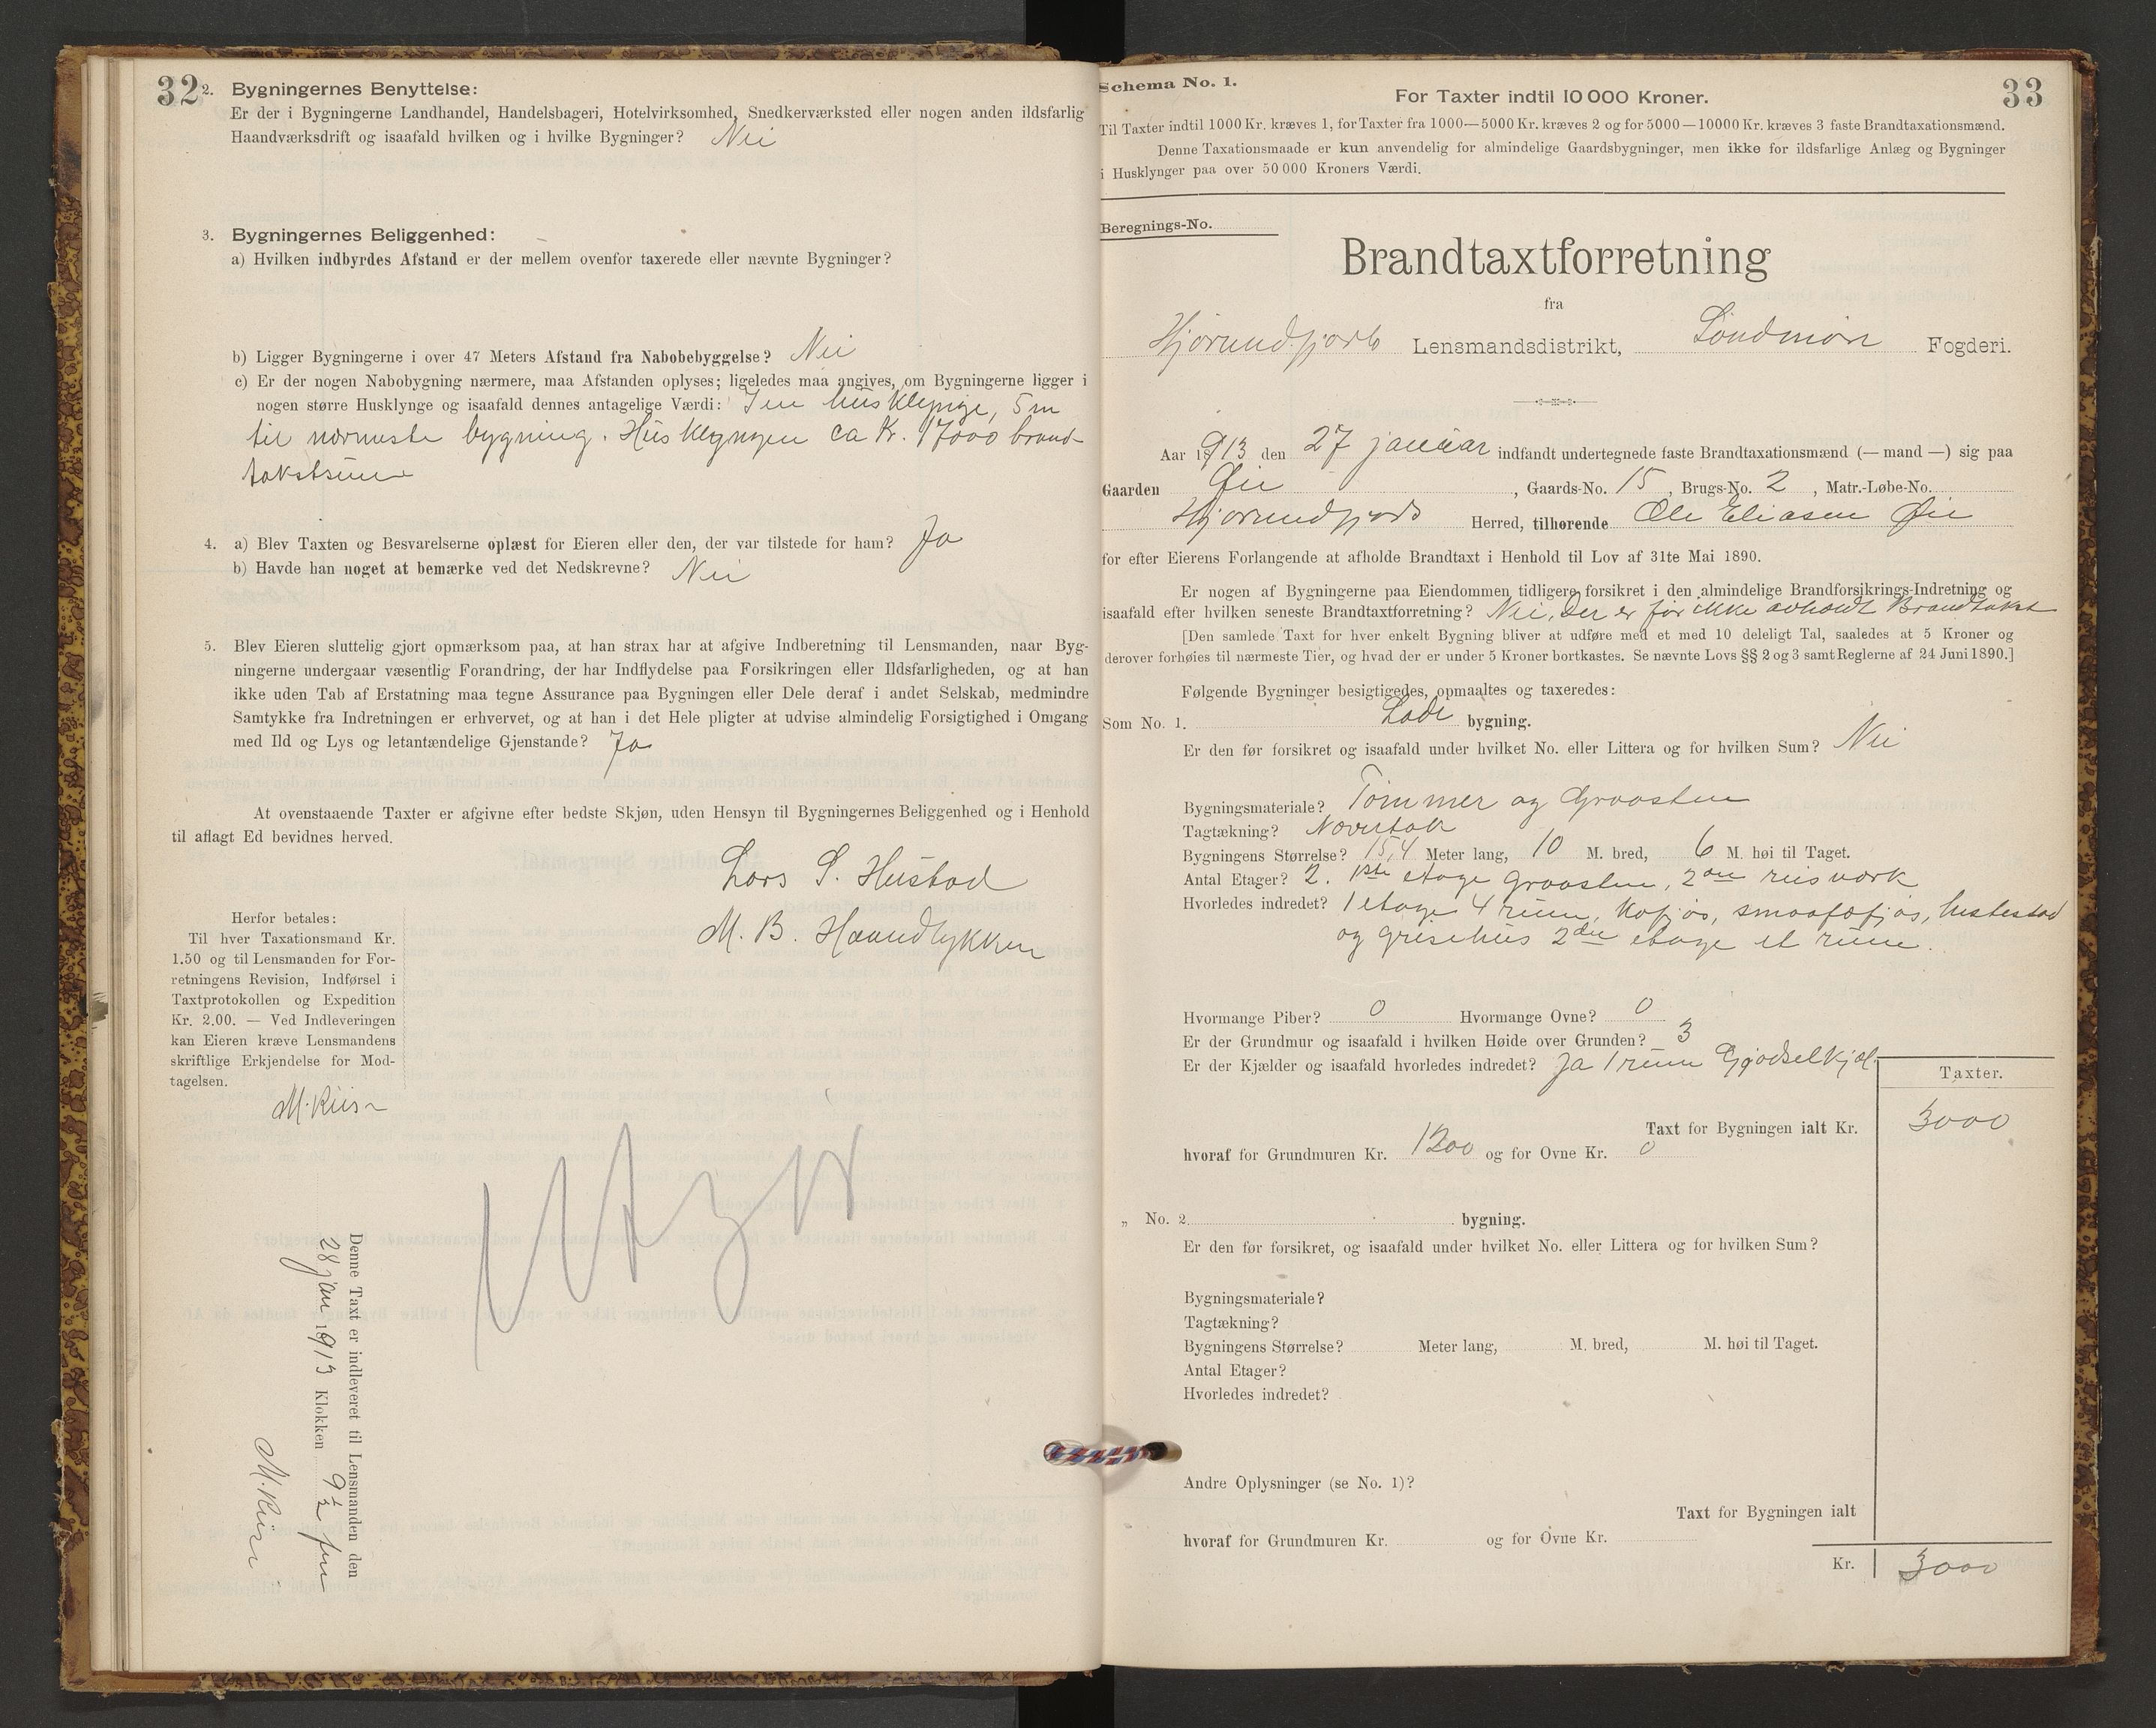 32
2. Bygningernes Benyttelse:
Er der i Bygningerne Landhandel, Handelsbageri, Hotelvirksomhed, Snedkerværksted eller nogen anden ildsfarlig
Haandværksdrift og isaafald hvilken og i hvilke Bygninger? Nei
3. Bygningernes Beliggenhed:
a) Hvilken indbyrdes Afstand er der mellem ovenfor taxerede eller nævnte Bygninger?
b) Ligger Bygningerne i over 47 Meters Afstand fra Nabobebyggelse? Nei
c) Er der nogen Nabobygning nærmere, maa Afstanden oplyses; ligeledes maa angives, om Bygningerne ligger i
nogen større Husklynge og isaafald dennes antagelige Værdi: I en husklynge, 5 m
til nærmeste bygning. Husklyngen ca Kr. 17000 brand-
takstsum
4. a) Blev Taxten og Besvarelserne oplæst for Eieren eller den, der var tilstede for ham? Ja
b) Havde han noget at bemærke ved det Nedskrevne? Nei
5. Blev Eieren sluttelig gjort opmærksom paa, at han strax har at afgive Indberetning til Lensmanden, naar Byg-
ningerne undergaar væsentlig Forandring, der har Indflydelse paa Forsikringen eller Ildsfarligheden, og at han
ikke uden Tab af Erstatning maa tegne Assurance paa Bygningen eller Dele deraf i andet Selskab, medmindre
Samtykke fra Indretningen er erhvervet, og at han i det Hele pligter at udvise almindelig Forsigtighed i Omgang
med Ild og Lys og letantændelige Gjenstande? Ja
At ovenstaaende Taxter er afgivne efter bedste Skjøn, uden Hensyn til Bygningernes Beliggenhed og i Henhold
til aflagt Ed bevidnes herved.
Lars S. Hustad
M. B. Haandlykken
Herfor betales:
Til hver Taxationsmand Kr.
1.50 og til Lensmanden for For-
retningens Revision, Indførsel i
Taxtprotokollen og Expedition
Kr. 2.00. — Ved Indleveringen
kan Eieren kræve Lensmandens
skriftlige Erkjendelse for Mod-
tagelsen.
M. Riise
Denne Taxt er indleveret til Lensmanden den
28 jan 1913 Klokken 9½ fm
M. Riise
Schema No. 1.
33
For Taxter indtil 10 000 Kroner.
Til Taxter indtil 1000 Kr. kræves 1, for Taxter fra 1000—5000 Kr. kræves 2 og for 5000—10000 Kr. kræves 3 faste Brandtaxationsmænd.
Denne Taxationsmaade er kun anvendelig for almindelige Gaardsbygninger, men ikke for ildsfarlige Anlæg og Bygninger
i Husklynger paa over 50 000 Kroners Værdi.
Beregnings-No.
Brandtaxtforretning
fra
Hjørundfjord Lensmandsdistrikt, Søndmør Fogderi.
Aar 1913 den 27 januar indfandt undertegnede faste Brandtaxationsmænd (— mand —) sig paa
Gaarden Øie, Gaards-No. 15, Brugs-No. 2, Matr.-Løbe-No.
Hjørundfjord Herred, tilhørende Ole Eliasen Øie
for efter Eierens Forlangende at afholde Brandtaxt i Henhold til Lov af 31te Mai 1890.
Er nogen af Bygningerne paa Eiendommen tidligere forsikret i den almindelige Brandforsikrings-Indretning og
isaafald efter hvilken seneste Brandtaxtforretning? Nei, der er før ikke avholdt Brandtakst
[Den samlede Taxt for hver enkelt Bygning bliver at udføre med et med 10 deleligt Tal, saaledes at 5 Kroner og
derover forhøies til nærmeste Tier, og hvad der er under 5 Kroner bortkastes. Se nævnte Lovs §§ 2 og 3 samt Reglerne af 24 Juni 1890.]
Følgende Bygninger besigtigedes, opmaaltes og taxeredes:
Som No. 1. Lade bygning.
Er den før forsikret og isaafald under hvilket No. eller Littera og for hvilken Sum? Nei
Bygningsmateriale? Tømmer og Graasten
Tagtækning? Nævertak
Bygningens Størrelse? 15,4 Meter lang, 10 M. bred, 6 M. høi til Taget.
Antal Etager? 2. 1ste etage graasten, 2den reisverk
Hvorledes indredet? 1 etage 4 rum, kofjøs, smaafefjøs, hestestad
og grisehus 2den etage et rum.
Hvormange Piber? 0 Hvormange Ovne? 0
Er der Grundmur og isaafald i hvilken Høide over Grunden? 3
Er der Kjælder og isaafald hvorledes indredet? Ja 1 rum Gjødselkjæl.
Taxter.
Taxt for Bygningen ialt Kr. 3000
hvoraf for Grundmuren Kr. 1200 og for Ovne Kr. 0
„ No. 2. bygning.
Er den før forsikret, og isaafald under hvilket No. eller Littera og for hvilken Sum?
Bygningsmateriale?
Tagtækning?
Bygningens Størrelse? Meter lang, M. bred, M. høi til Taget.
Antal Etager?
Hvorledes indredet?
Andre Oplysninger (se No. 1)?
Taxt for Bygningen ialt
hvoraf for Grundmuren Kr. og for Ovne Kr.
Kr. 3000